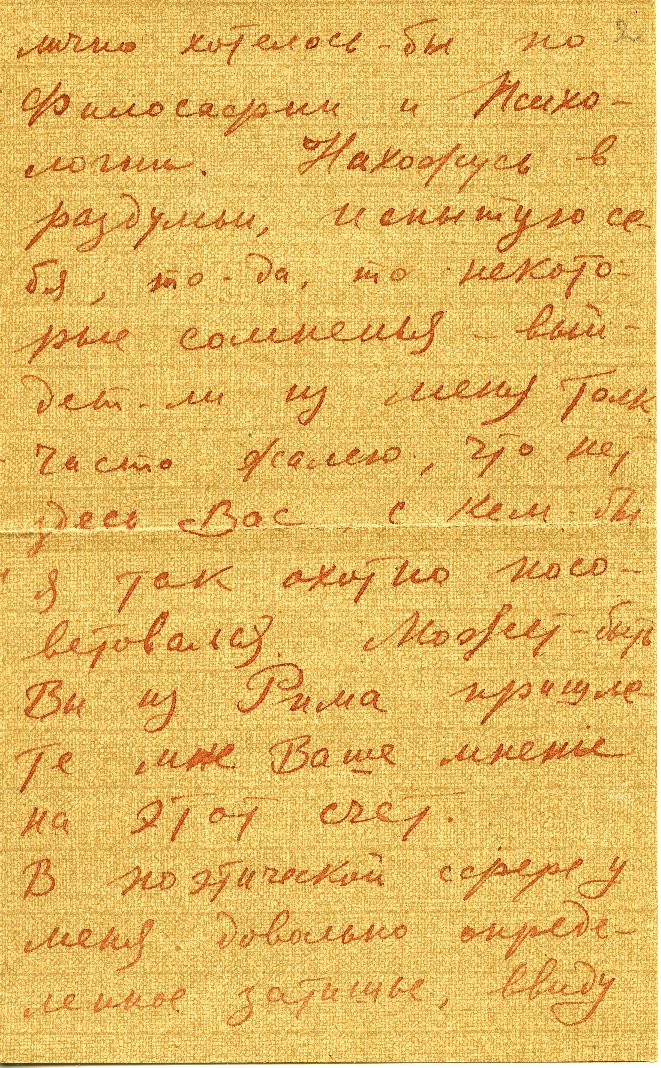 2
лично хотелось-бы по
Философии и Психо-
логии. Нахожусь в
раздумьи, испытую се-
бя, то-да, то некото-
рые сомненья – вый-
дет-ли из меня толк
Часто жалею, что нет
здесь Вас, с кем-бы
я так охотно посо-
ветовался. Может-быть
Вы из Рима пришле-
те мне Ваше мненье
на этот счет.
В поэтической сфере у
меня довольно опреде-
ленное затишье, ввиду